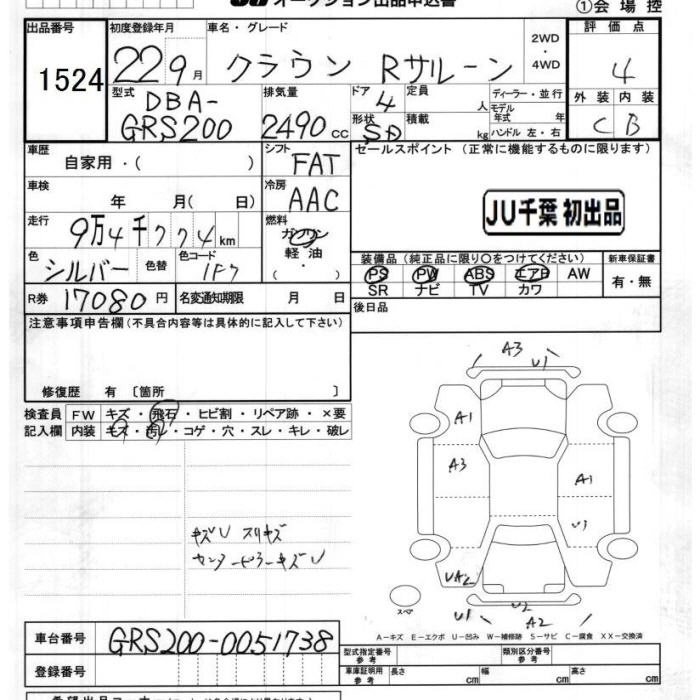 オークション出品申込書
①会場控
出品番号 初度登録年月 車名・グレード 2WD・4WD 評価点
1524 22 9月 クラウン Rサルーン 4
型式 DBA-GRS200 排気量 2490cc ドア 4 形状 SD 定員 人 積載 kg ディーラー・並行 モデル年式 年 ハンドル 左・右 外装 C 内装 B
車歴 自家用・( ) シフト FAT セールスポイント (正常に機能するものに限ります)
車検 年 月( 日) 冷房 AAC
JU千葉 初出品
走行 9万4千774km 燃料 ガソリン 軽油 ( ・ )
色 シルバー 色替 色コード 1F7
装備品(純正品に限り○をつけてください) 新車保証書
PS PW ABS エアB AW 有・無
SR ナビ TV カワ
R券 17080円 名変通知期限 月 日 後日品
注意事項申告欄(不具合内容等は具体的に記入して下さい)
修復歴 有 〔箇所 〕
検査員 FW キズ・飛石・ヒビ割・リペア跡・×要
記入欄 内装 キズ・汚レ・コゲ・穴・スレ・キレ・破レ
A3 U1
A1
A3 A1
U3
キズU スリキズ
センターピラーキズU
UA2
U1 U2 A2
スペア
A-キズ E-エクボ U-凹み W-補修跡 S-サビ C-腐食 XX-交換済
車台番号 GRS200-0051738
型式指定番号 参考 類別区分番号 参考
登録番号 車庫証明用 参考 長さ cm 幅 cm 高さ cm